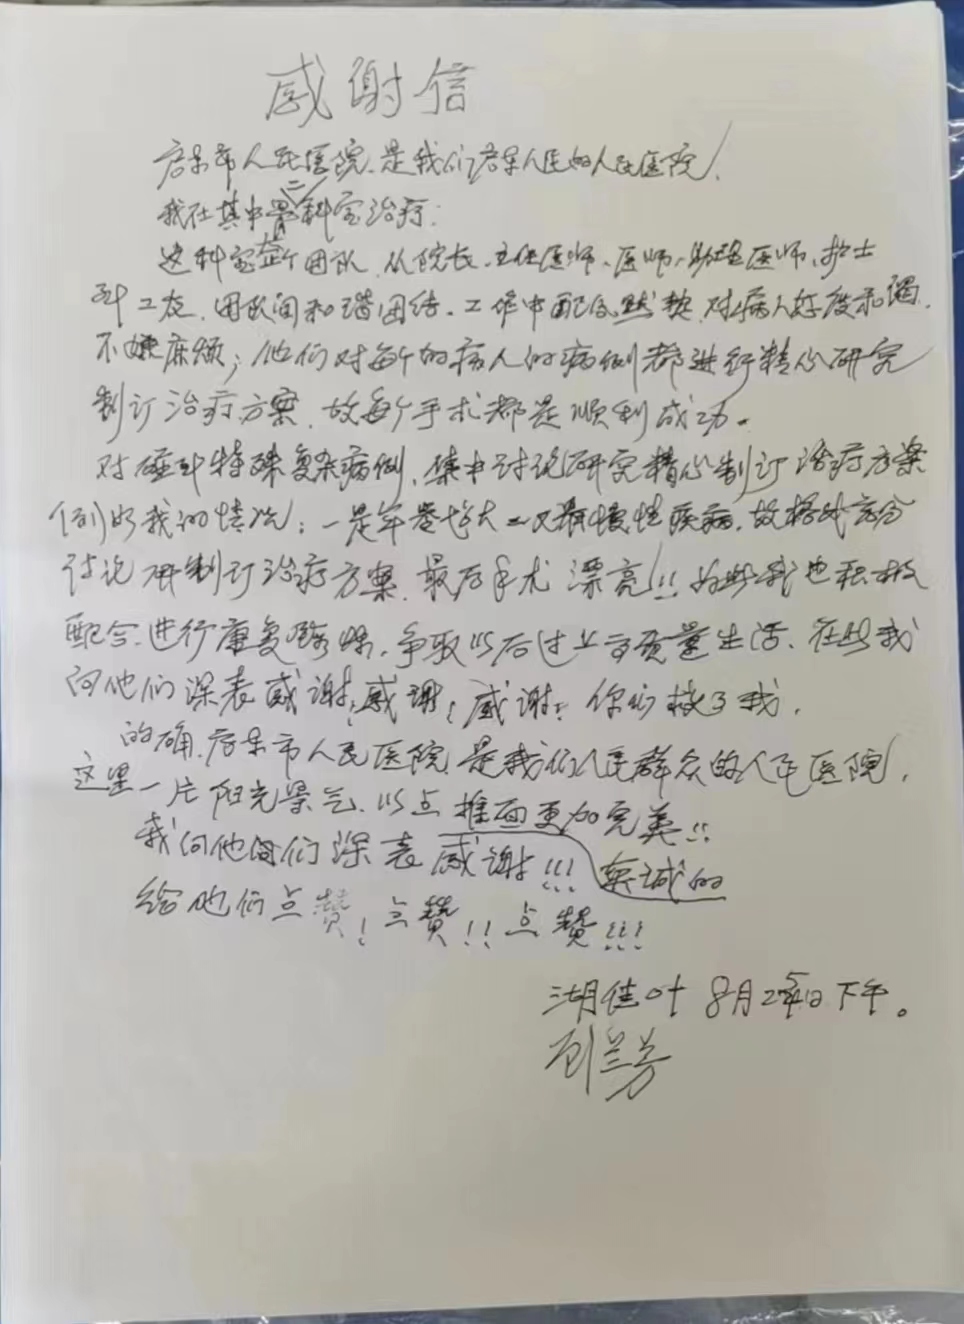 感谢信
启东市人民医院、是我们启东人民的人民医院！
我在其中骨二科室治疗：
这科室整个团队、从院长、主任医师、医师、助理医师、护士
到工友、团队间和谐团结、工作中配合默契、对病人态度和谐、
不嫌麻烦；他们对每个的病人的病例都进行精心研究
制订治疗方案、故每个手术都是顺利成功。
对碰到特殊复杂病例、集中讨论研究精心制订治疗方案
例如我的情况：一是年老 大二又有慢性疾病、故 充分
讨论研制订治疗方案、最后手术漂亮!!! 为此我也积极
配合、进行康复锻炼、争取以后过上高质量生活、在此我
向他们深表感谢！感谢！感谢！你们救了我、
的确、启东市人民医院是我们人民群众的人民医院！
这里一片阳光景气、以点推面更加完美!!
我向他们深表感谢!!! 的
给他们点赞！点赞!!点赞!!!
湖佳叶 8月25日下午。
刘兰芳